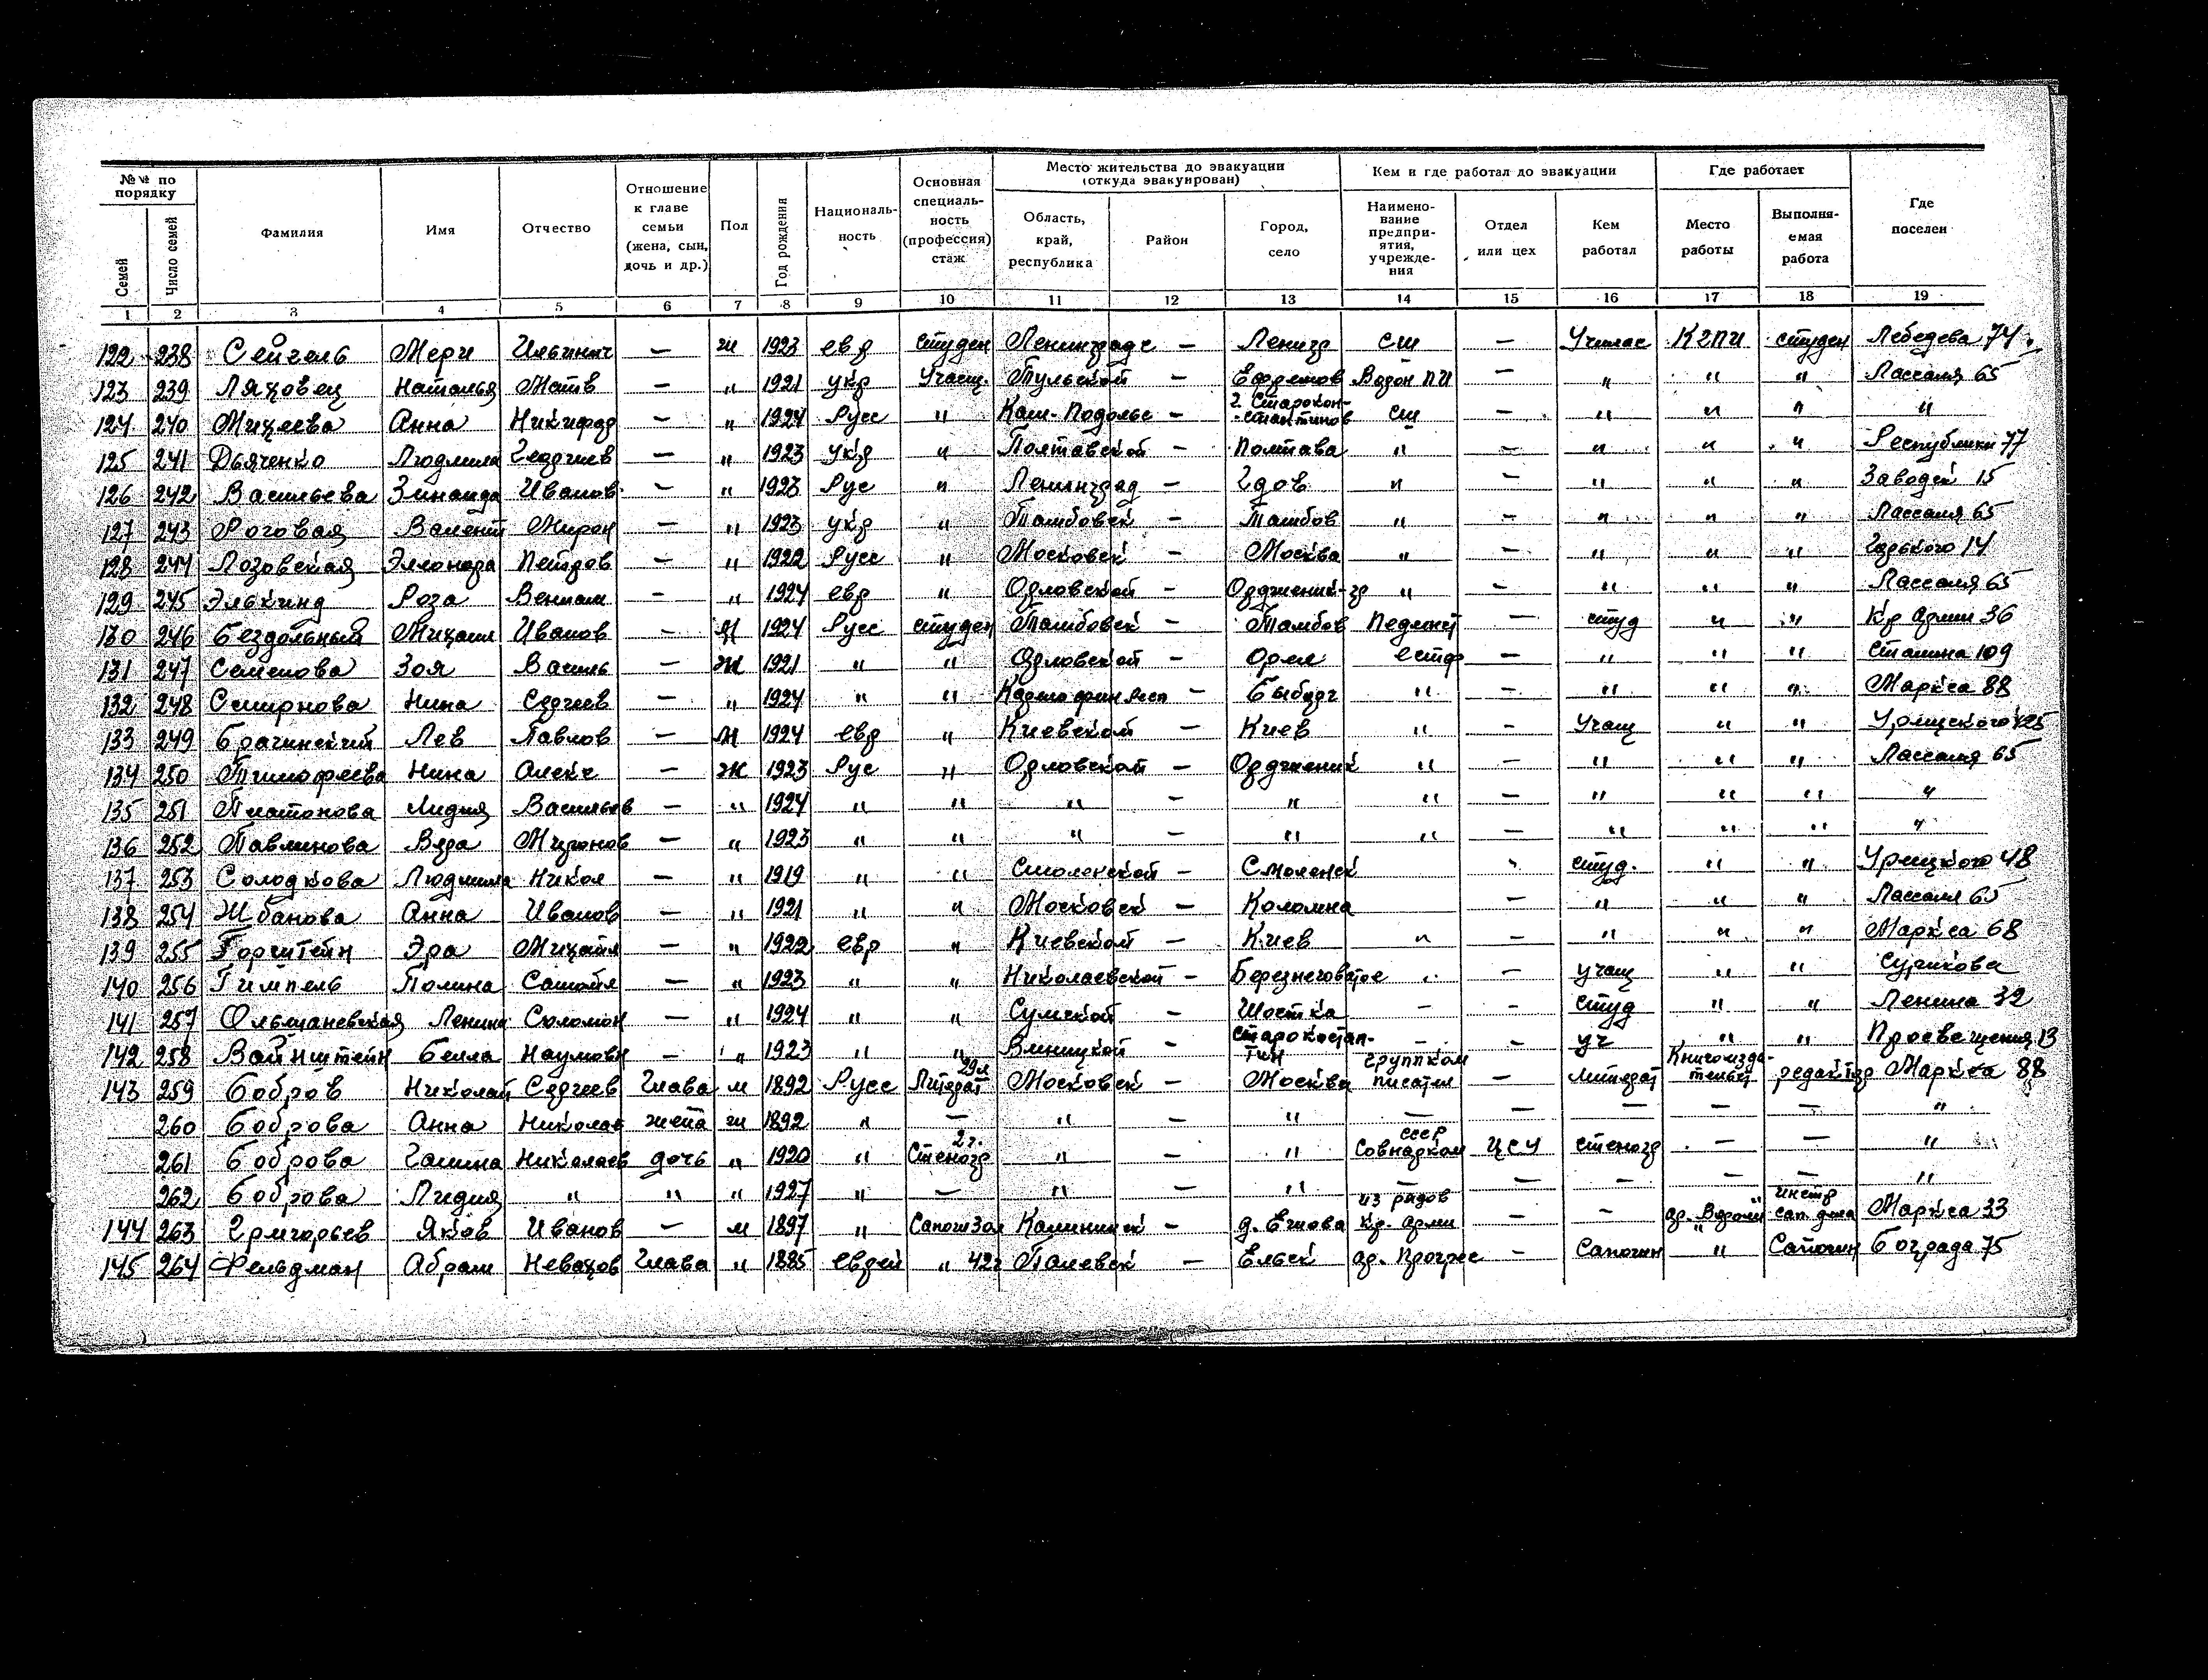 №№ по порядку | Фамилия | Имя | Отчество | Отношение к главе семьи (жена, сын, дочь и др.) | Пол | Год рождения | Националь-ность | Основная специаль-ность (профессия) стаж | Место жительства до эвакуации (откуда эвакуирован) | Кем и где работал до эвакуации | Где работает | Где поселен
Семей | Число семей | Область, край, республика | Район | Город, село | Наимено-вание предпри-ятия, учрежде-ния | Отдел или цех | Кем работал | Место работы | Выполня-емая работа
1 2 3 4 5 6 7 8 9 10 11 12 13 14 15 16 17 18 19
122 238 Сейгель Мери Ильинич — ж 1923 евр студен Ленинградс — Ленигр сш — КГПИ студен Лебедева 74
123 239 Ляховец Наталья Матв — " 1921 укр Учащ. Тульской — Ефремов ПИ — " " " Лассаля 65
124 240 Михеева Анна Никифор — " 1924 Русс " Кам-Подольс — г. Старокон-стантинов сш — " " " "
125 241 Дьяченко Людмила Георгиев — " 1923 укр " Полтавской — Полтава " — " " " Республики 77
126 242 Васильева Зинаида Иванов — " 1923 Рус " Ленинград — Гдов " — " " " Заводск 15
127 243 Роговая Валент Мирон — " 1923 укр " Тамбовск — Тамбов " — " " " Лассаля 65
128 244 Лозовская Элеонора Петров — " 1922 Русс " Московск — Москва " — " " " Горького 14
129 245 Элькинд Роза Вениам — " 1924 евр " Орловской — Орджоник-гр " — " " " Лассаля 65
130 246 Бездольный Михаил Иванов — М 1924 Русс студен Тамбовск — Тамбов Пединст — студ " " Кр Армии 36
131 247 Семенова Зоя Василь — Ж 1921 " " Орловской — Орел — " " " Сталина 109
132 248 Смирнова Нина Сергеев — " 1924 " " Карело фин Респ — Выборг " — " " " Маркса 88
133 249 Брагинский Лев Павлов — М 1924 евр " Киевской — Киев " — Учащ " " Урицкого 125
134 250 Тимофеева Нина Алекс — Ж 1923 Рус " Орловской — Орджоник " — " " " Лассаля 65
135 251 Платонова Лидия Васильев — " 1924 " " " — " " — " " " "
136 252 Павлинова Вера Миронов — " 1923 " " " — " " — " " " "
137 253 Солодкова Людмила Никол — " 1919 " " Смоленской — Смоленск студ. " " Урицкого 48
138 254 Жбанова Анна Иванов — " 1921 " " Московск — Коломна — " " " Лассаля 65
139 255 Горштейн Эра Михайл — " 1922 евр " Киевской — Киев " — " " " Маркса 68
140 256 Гимпель Полина Самойл — " 1923 " " Николаевской — Березнеговатое — учащ " " Сурикова
141 257 Ольшаневская Ленина Соломон — " 1924 " " Сумской — Шостка — — студ " " Ленина 32
142 258 Вайнштейн Белла Наумовн — " 1923 " " Виницкой — Старокостан-тин — — уч " " Просвещения 13
143 259 Бобров Николай Сергеев Глава м 1892 Русс Литерат 29л Московск — Москва группком писател — литерат Книгоизда-тельст редактор Маркса 88
260 Боброва Анна Николае жена ж 1892 " — " " — — — — — "
261 Боброва Галина Николаев дочь " 1920 " Стеногр 2г. " — " СССР Совнарком ЦСУ стеногр — — "
262 Боброва Лидия " " " 1927 " — " — " — — — — — "
144 263 Григорьев Яков Иванов — м 1897 " Сапож 30л Калининск — д. из рядов кр. арми — — ар. инстр сап. дела Маркса 33
145 264 Фельдман Абрам Невахов Глава " 1885 еврей " 42г — Ельск ар. Прогрес — Сапожн " Сапожн Бограда 75